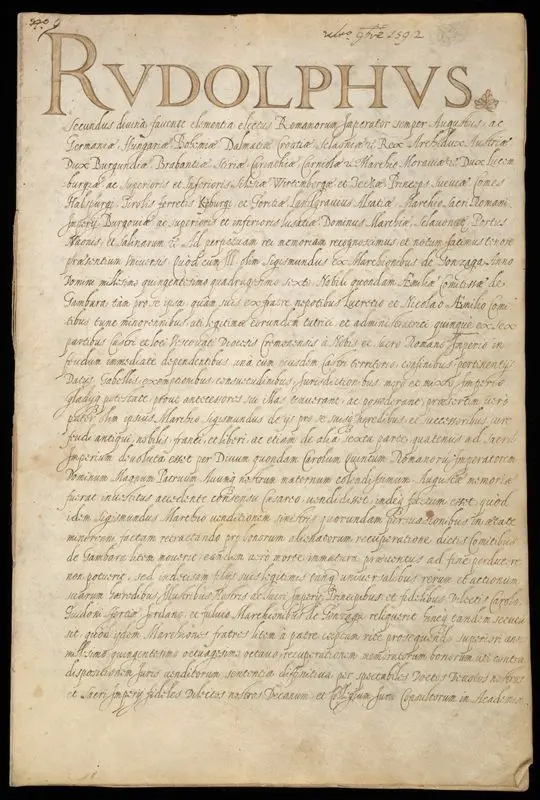 RVDOLPHVS
Secundus divina favente clementia electus Romanorum Imperator semper Augustus, ac
Germaniæ, Hungariæ Bohemiæ Dalmatiæ Croatiæ, Sclavoniæ &c. Rex Archidux Austriæ
Dux Burgundiæ Brabantiæ Stiriæ Carinthiæ Carniolæ &c. Marchio Moraviæ &c. Dux Lucem
burgiæ ac superioris et Inferioris Silesiæ Wirtembergæ et Teckæ Princeps Sueviæ Comes
Habspurgi Tyrolis Ferretis Kyburgi et Goritiæ Landgravius Alsatiæ Marchio Sacri Romani
Imperij Burgoviæ ac superioris et inferioris Lusatiæ Dominus Marchiæ, Sclavonicæ Portus
Naonis et Salinarum &c. Ad perpetuam rei memoriam recognoscimus et notum facimus tenore
præsentium Universis Quod cum Ill. olim Sigismundus ex Marchionibus de Gonzaga Anno
Domini millesimo quingentesimo quadragesimo sexto Nobili quondam Æmiliæ Comitissæ de
Gambara tam pro se ipsa quam suis ex fratre nepotibus Lucretio et Nicolao Æmilio Comi
tibus tunc minorennibus, ut legitimæ eorundem tutrici et administratrici quinque ex sex
partibus Castri et loci Diocesis Cremonensis à Nobis et sacro Romano Imperio in
feudum immediate dependentibus una cum eiusdem Castri territorio, confinibus pertinentijs
Datijs Gabellis, exemptionibus consuetudinibus, Jurisdictionibus mero et mixto Imperio
gladij potestate prout antecessores sui illas tenuerant, ac possederant, præteritam vero
pater olim ipsius Marchio Sigismundus de ijs pro se suisque heredibus, et successoribus iure
feudi antiqui, nobilis, franci, et liberi, ac etiam de alia sexta parte, quatenus ad Sacrum
Imperium devoluta esset per Divum quondam Carolum Quintum Romanorum Imperatorem
Dominum Magnum Patruum Avum nostrum maternum colendissimum Augustæ memoriæ
fuerat investitus accedente consensu Cæsareo vendidisset, indeque factum esset, quod
idem Sigismundus Marchio venditionem sinistris quorundam persuasionibus in ætate
minorenni factam retractando pro bonorum alienatorum recuperatione dictis Comitibus
de Gambara litem moverit, eandem vero morte immatura præventus ad finem perducere
non potuerit, sed indecisam filijs suis legitimis tanquam universalibus rerum et actionum
suarum hæredibus, Illustribus Nostris ac Sacri Imperij Principibus et fidelibus Dilectis Carolo,
Guidoni Sfortiæ Jordano, et Fulvio Marchionibus de Gonzaga reliquerit hincque tandem secutum
sit, quod ijdem Marchiones fratres litem à patre cœptam rite prosequendo superiori anno
millesimo quingentesimo octuagesimo octavo recuperationem nominatorum bonorum uti contra
dispositionem Juris venditorum sententia diffinitiva per spectabiles Doctos Devotos nostros
et Sacri Imperij fideles Dilectos nostros Decanum, et Collegium Juris Consultorum in Academia